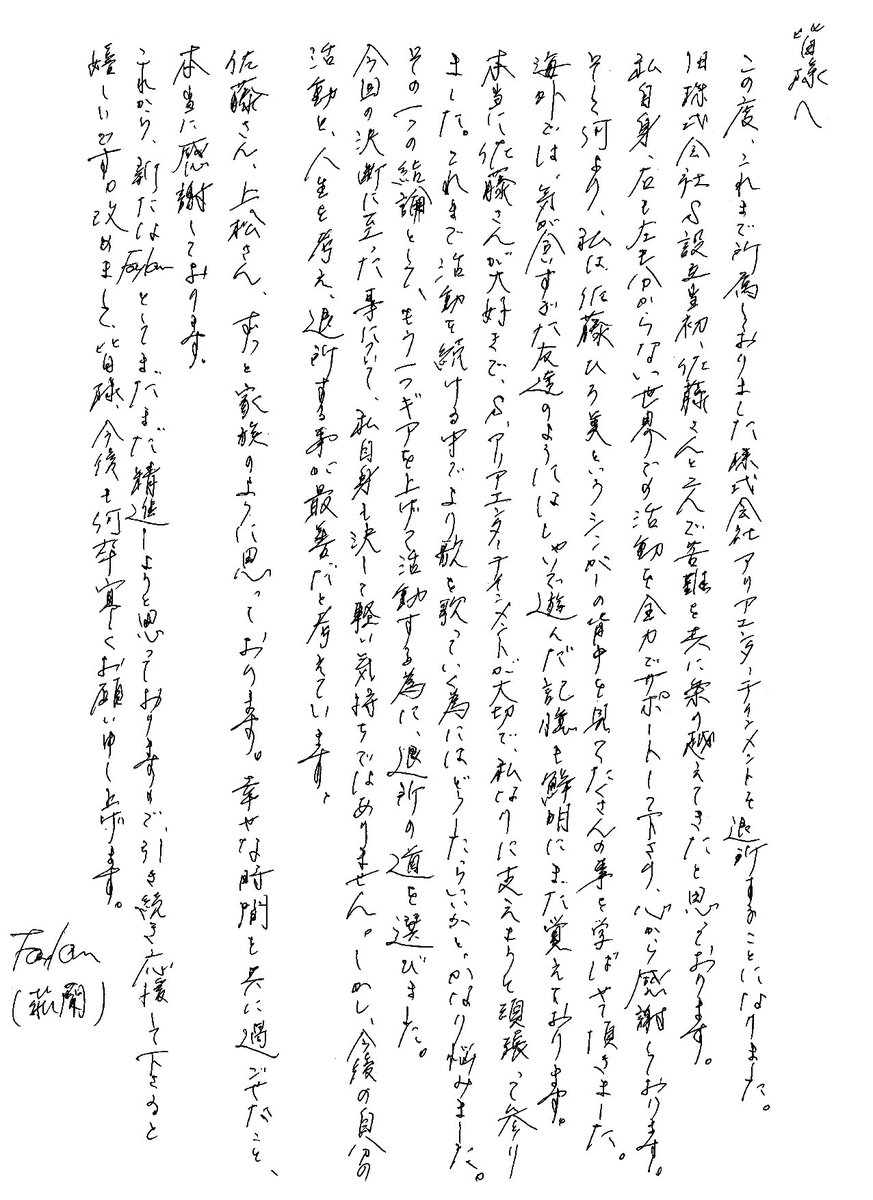 皆様へ
この度、これまで所属しておりました株式会社アリアエンターテインメントを退所することになりました。
旧株式会社S設立当初、佐藤さんと二人で苦難を共に乗り越えてきたと思っております。
私自身、右も左も分からない世界での活動を全力でサポートして下さり、心から感謝しております。
そして何より、私は、佐藤ひろ美というシンガーの背中を見てたくさんの事を学ばせて頂きました。
海外では、気が合いすぎた友達のようにはしゃいで遊んだ記憶も鮮明にまだ覚えております。
本当に佐藤さんが大好きで、S、アリアエンターテインメントが大切で、私なりに支えようと頑張って参り
ました。これまで活動を続ける中でより歌を歌っていく為にはどうしたらいいかと、かなり悩みました。
その一つの結論として、もう一つギアを上げて活動する為に、退所の道を選びました。
今回の決断に至った事について、私自身も決して軽い気持ちではありません。しかし、今後の自分の
活動と、人生を考え、退所する事が最善だと考えています。
佐藤さん、上松さん、ずっと家族のように思っております。幸せな時間を共に過ごせたこと、
本当に感謝しております。
これから、新たなFaylanとしてまだまだ精進しようと思っておりますので、引き続き応援して下さると
嬉しいです。改めまして、皆様、今後も何卒宜しくお願い申し上げます。
Faylan
(飛蘭)